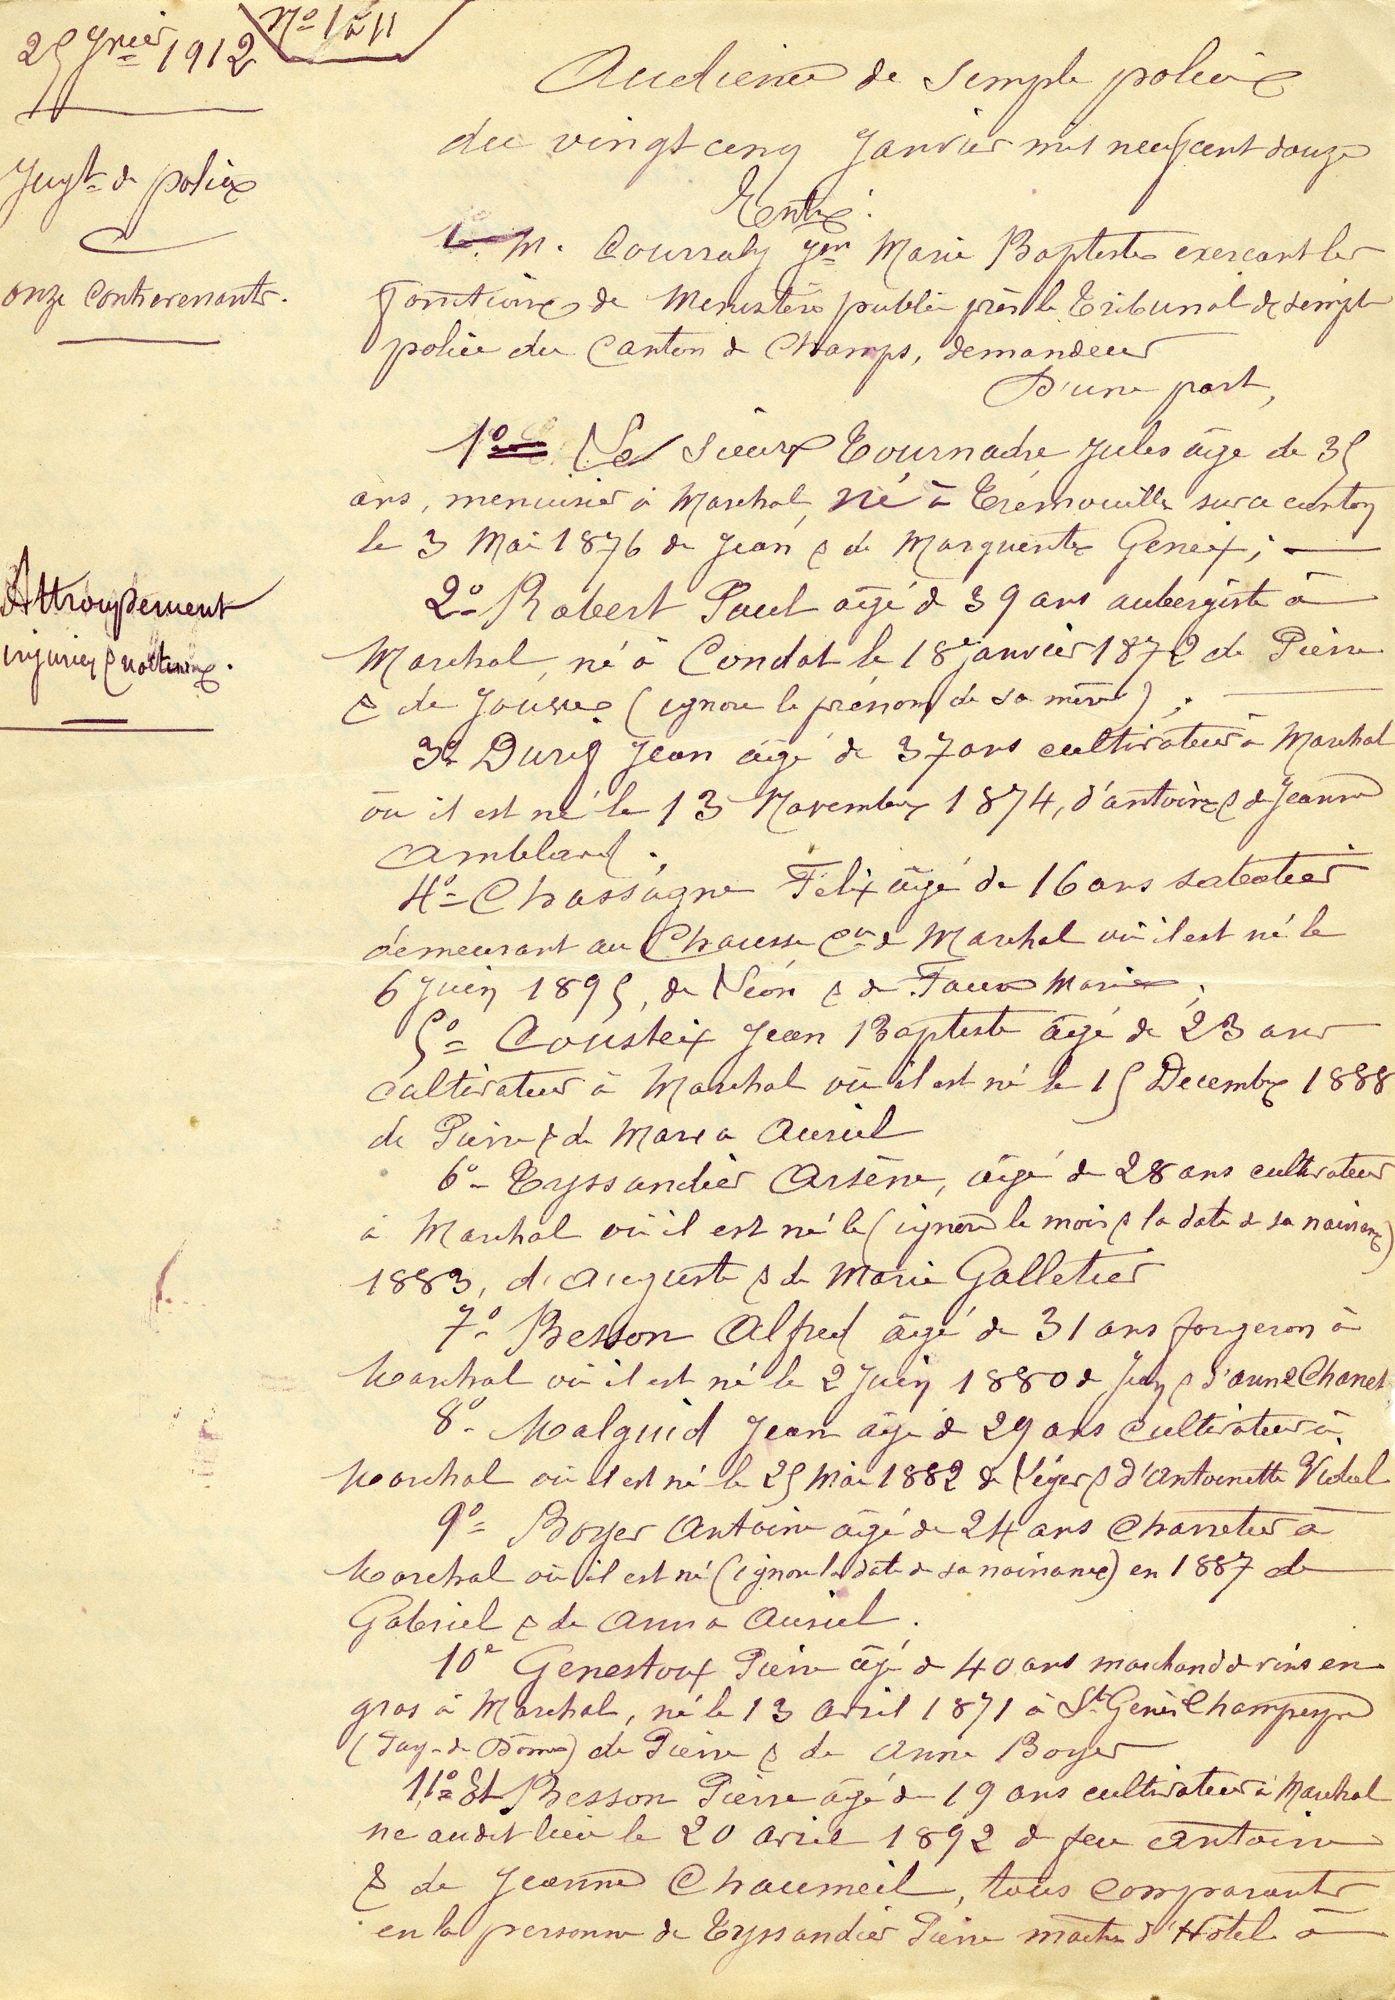 25 Jvier 1912
No 1 à 11
Jugt de police
onze contrevenants.
Attroupement
injurieux & nocturne.
Audience de simple police
du vingt cinq Janvier mil neuf cent douze
Entre :
M. Courraly Jean Marie Baptiste exercant les
fonctions de Ministère public près le Tribunal de simple
police du Canton de Champs, demandeur
D'une part,
1o Le Sieur Tournadre Jules âgé de 35
ans, menuisier à Marchal, né à Trémouille sur ce canton
le 3 Mai 1876 de Jean & de Marguerite Geneix ;
2o Robert Paul âgé de 39 ans aubergiste à
Marchal, né à Condat le 18 Janvier 1872 de Pierre
& de (ignore le prénom de sa mère) ;
3o Durif Jean âgé de 37 ans cultivateur à Marchal
où il est né le 13 Novembre 1874, d'antoine & de Jeanne
Amblard.
4o Chassagne Félix âgé de 16 ans sabotier
demeurant au Chausse cne de Marchal où il est né le
6 Juin 1895, de Léon & de Faux Marie ;
5o Cousteix Jean Baptiste âgé de 23 ans
cultivateur à Marchal où il est né le 15 Décembre 1888
de Pierre & de Maria Auriel
6o Eyssandier Arsène, âgé de 28 ans cultivateur
à Marchal où il est né le (ignore le mois & la date de sa naissance)
1883, d'auguste & de Marie Galletier
7o Besson Alfred âgé de 31 ans forgeron à
Marchal où il est né le 2 Juin 1880 de Jean & d'anne Chanet
8o Malguid Jean âgé de 29 ans cultivateur à
Marchal où il est né le 25 Mai 1882 de Léger & d'Antoinette Vidal
9o Boyer Antoine âgé de 24 ans charretier à
Marchal où il est né (ignore la date de sa naissance) en 1887 de
Gabriel & de Anna Auriel.
10e Genestoux Pierre âgé de 40 ans marchand de vins en
gros à Marchal, né le 13 avril 1871 à St Genès Champespe
(Puy-de-Dôme) de Pierre & de Anne Boyer
11o Et Besson Pierre âgé de 19 ans cultivateur à Marchal
né audit lieu le 20 avril 1892 de feu Antoine
& de Jeanne Chaumeil, tous comparants
en la personne de Eyssandier Pierre maitre d'Hôtel à